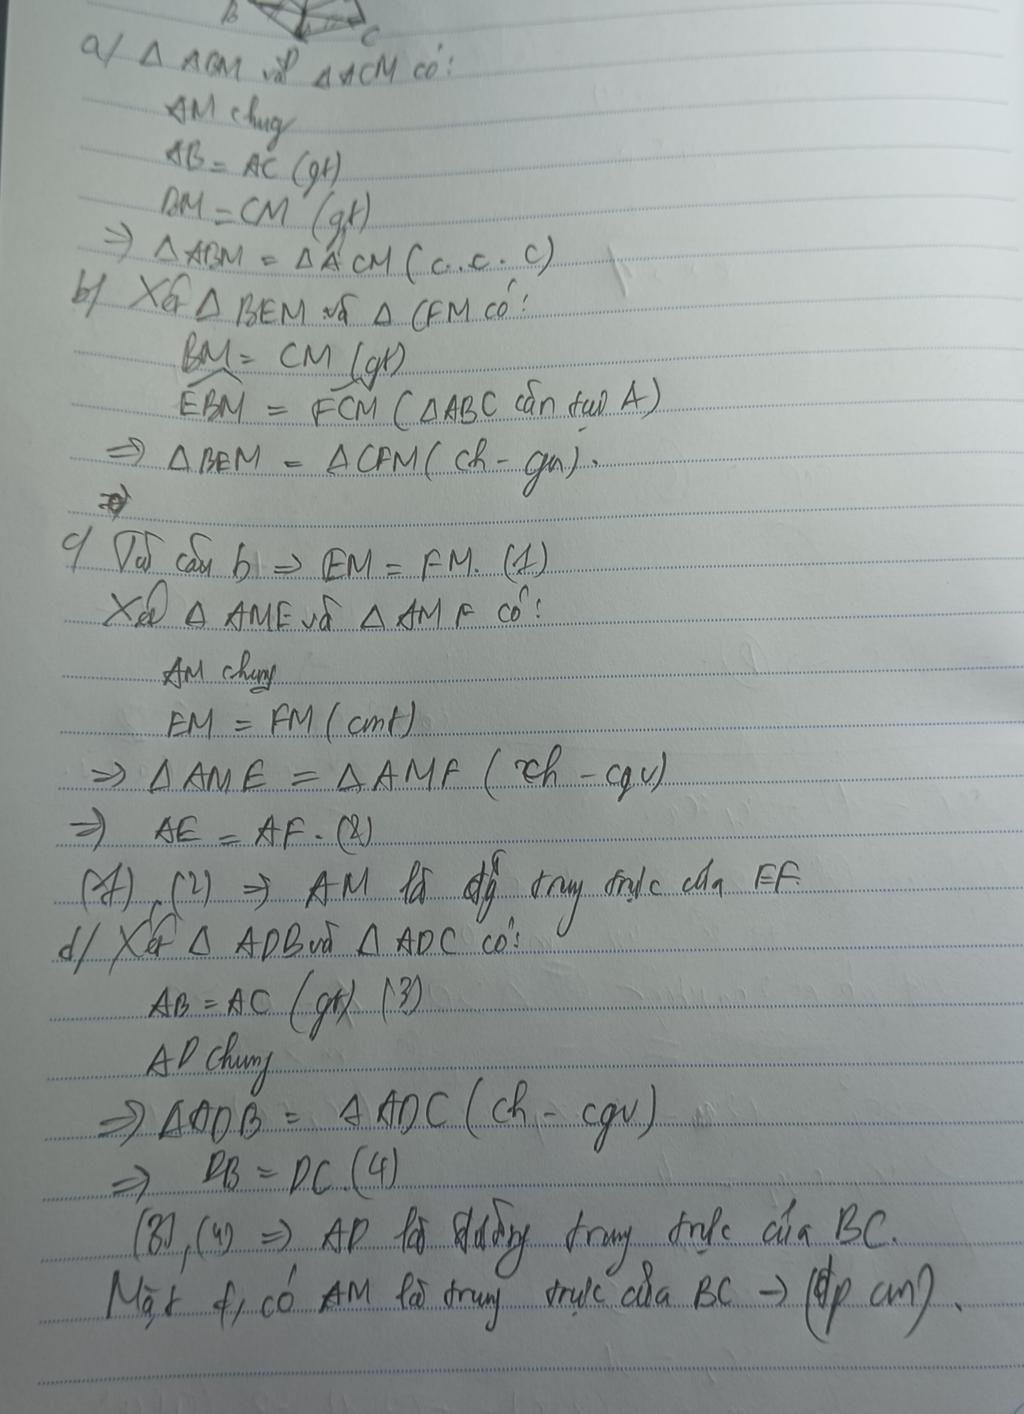 B C
a/ Δ ABM và Δ ACM có:
AM chug
AB = AC (gt)
BM = CM (gt)
⇒ Δ ABM = Δ ACM (c.c.c)
b/ Xét Δ BEM và Δ CFM có:
BM = CM (gt)
EBM = FCM (ΔABC cân tại A)
⇒ Δ BEM = Δ CFM (ch - gn).
⇒
c/ Từ câu b ⇒ EM = FM. (1)
Xét Δ AME và Δ AMF có:
AM chung
EM = FM (cmt)
⇒ Δ AME = Δ AMF (ch - cgv)
⇒ AE = AF. (2)
(1), (2) ⇒ AM là đg trug trực của EF.
d/ Xét Δ ADB và Δ ADC có:
AB = AC (gt) (3)
AD chung
⇒ Δ ADB = Δ ADC (ch - cgv)
⇒ DB = DC. (4)
(3), (4) ⇒ AD là đường trung trực của BC.
Mặt ≠, có AM là trung trực của BC → (đp cm).